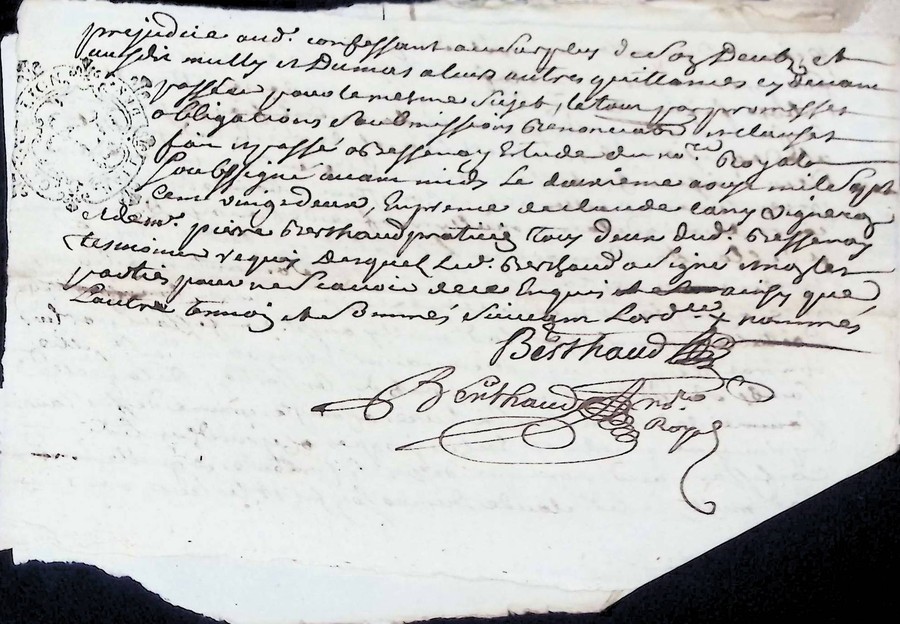 prejudice aud. confessant au surplus
ausdit Mully et Dumas a leurs autres quittances cy devant
passées pour le mesme sujet, le tout par promesses
obligations soubmissions renonciaõns et clauses
fait et passé a Bessenay Etude du no.re Royal
soubsigné avant midy le deuxieme aoust mil sept
cent vingt deux, En presence de claude Cany vigneron
et de m.e pierre Berthaud praticien tous deux dud. Bessenay
tesmoins requis desquels led. Berthaud a signé et non les
parties pour ne scavoir de ce Enquis ainsy que
L'autre temoin et sommés suivant Lord.ce nommés
Berthaud
Berthaud no.re
Royal